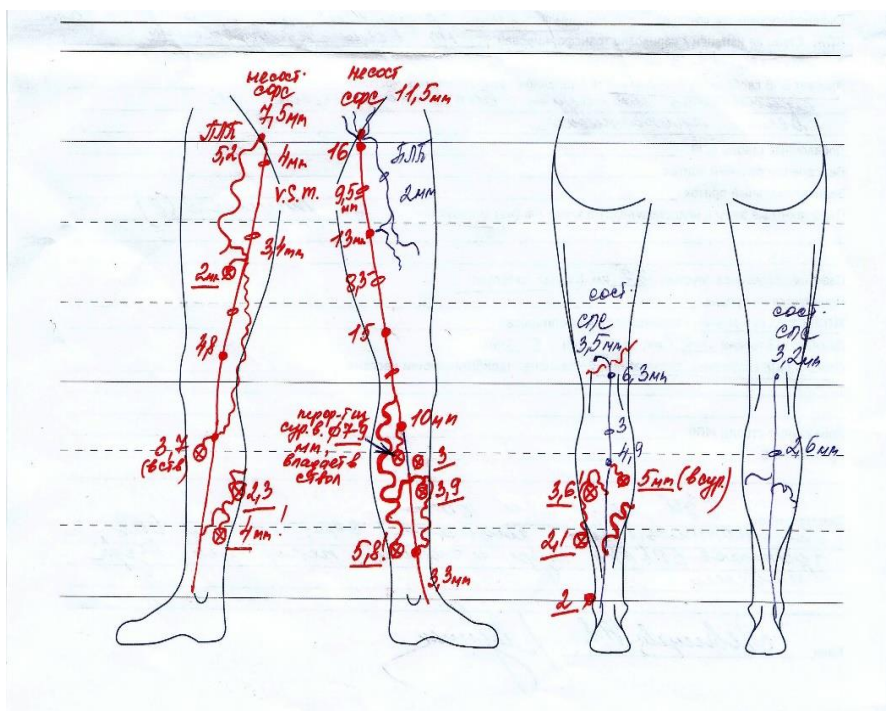 несост.
СФС
7,5мм
ПЛП
5,2
4мм
V.S.m.
3,4мм
2мм
4,8
3,7
(вств)
2,3
4мм!
несост
СФС
11,5мм
16
ПЛП
9,5
мм
2мм
13мм
8,5
15
10мм
сур.в. Ф7-9
мм,
впадает в
ствол
3
3,9
5,8!
3,3мм
сост.
СПС
3,5мм
6,3мм
3
4,9
3,6!
5мм (в сур.)
2,1
2
сост.
СПС
3,2мм
2,6мм